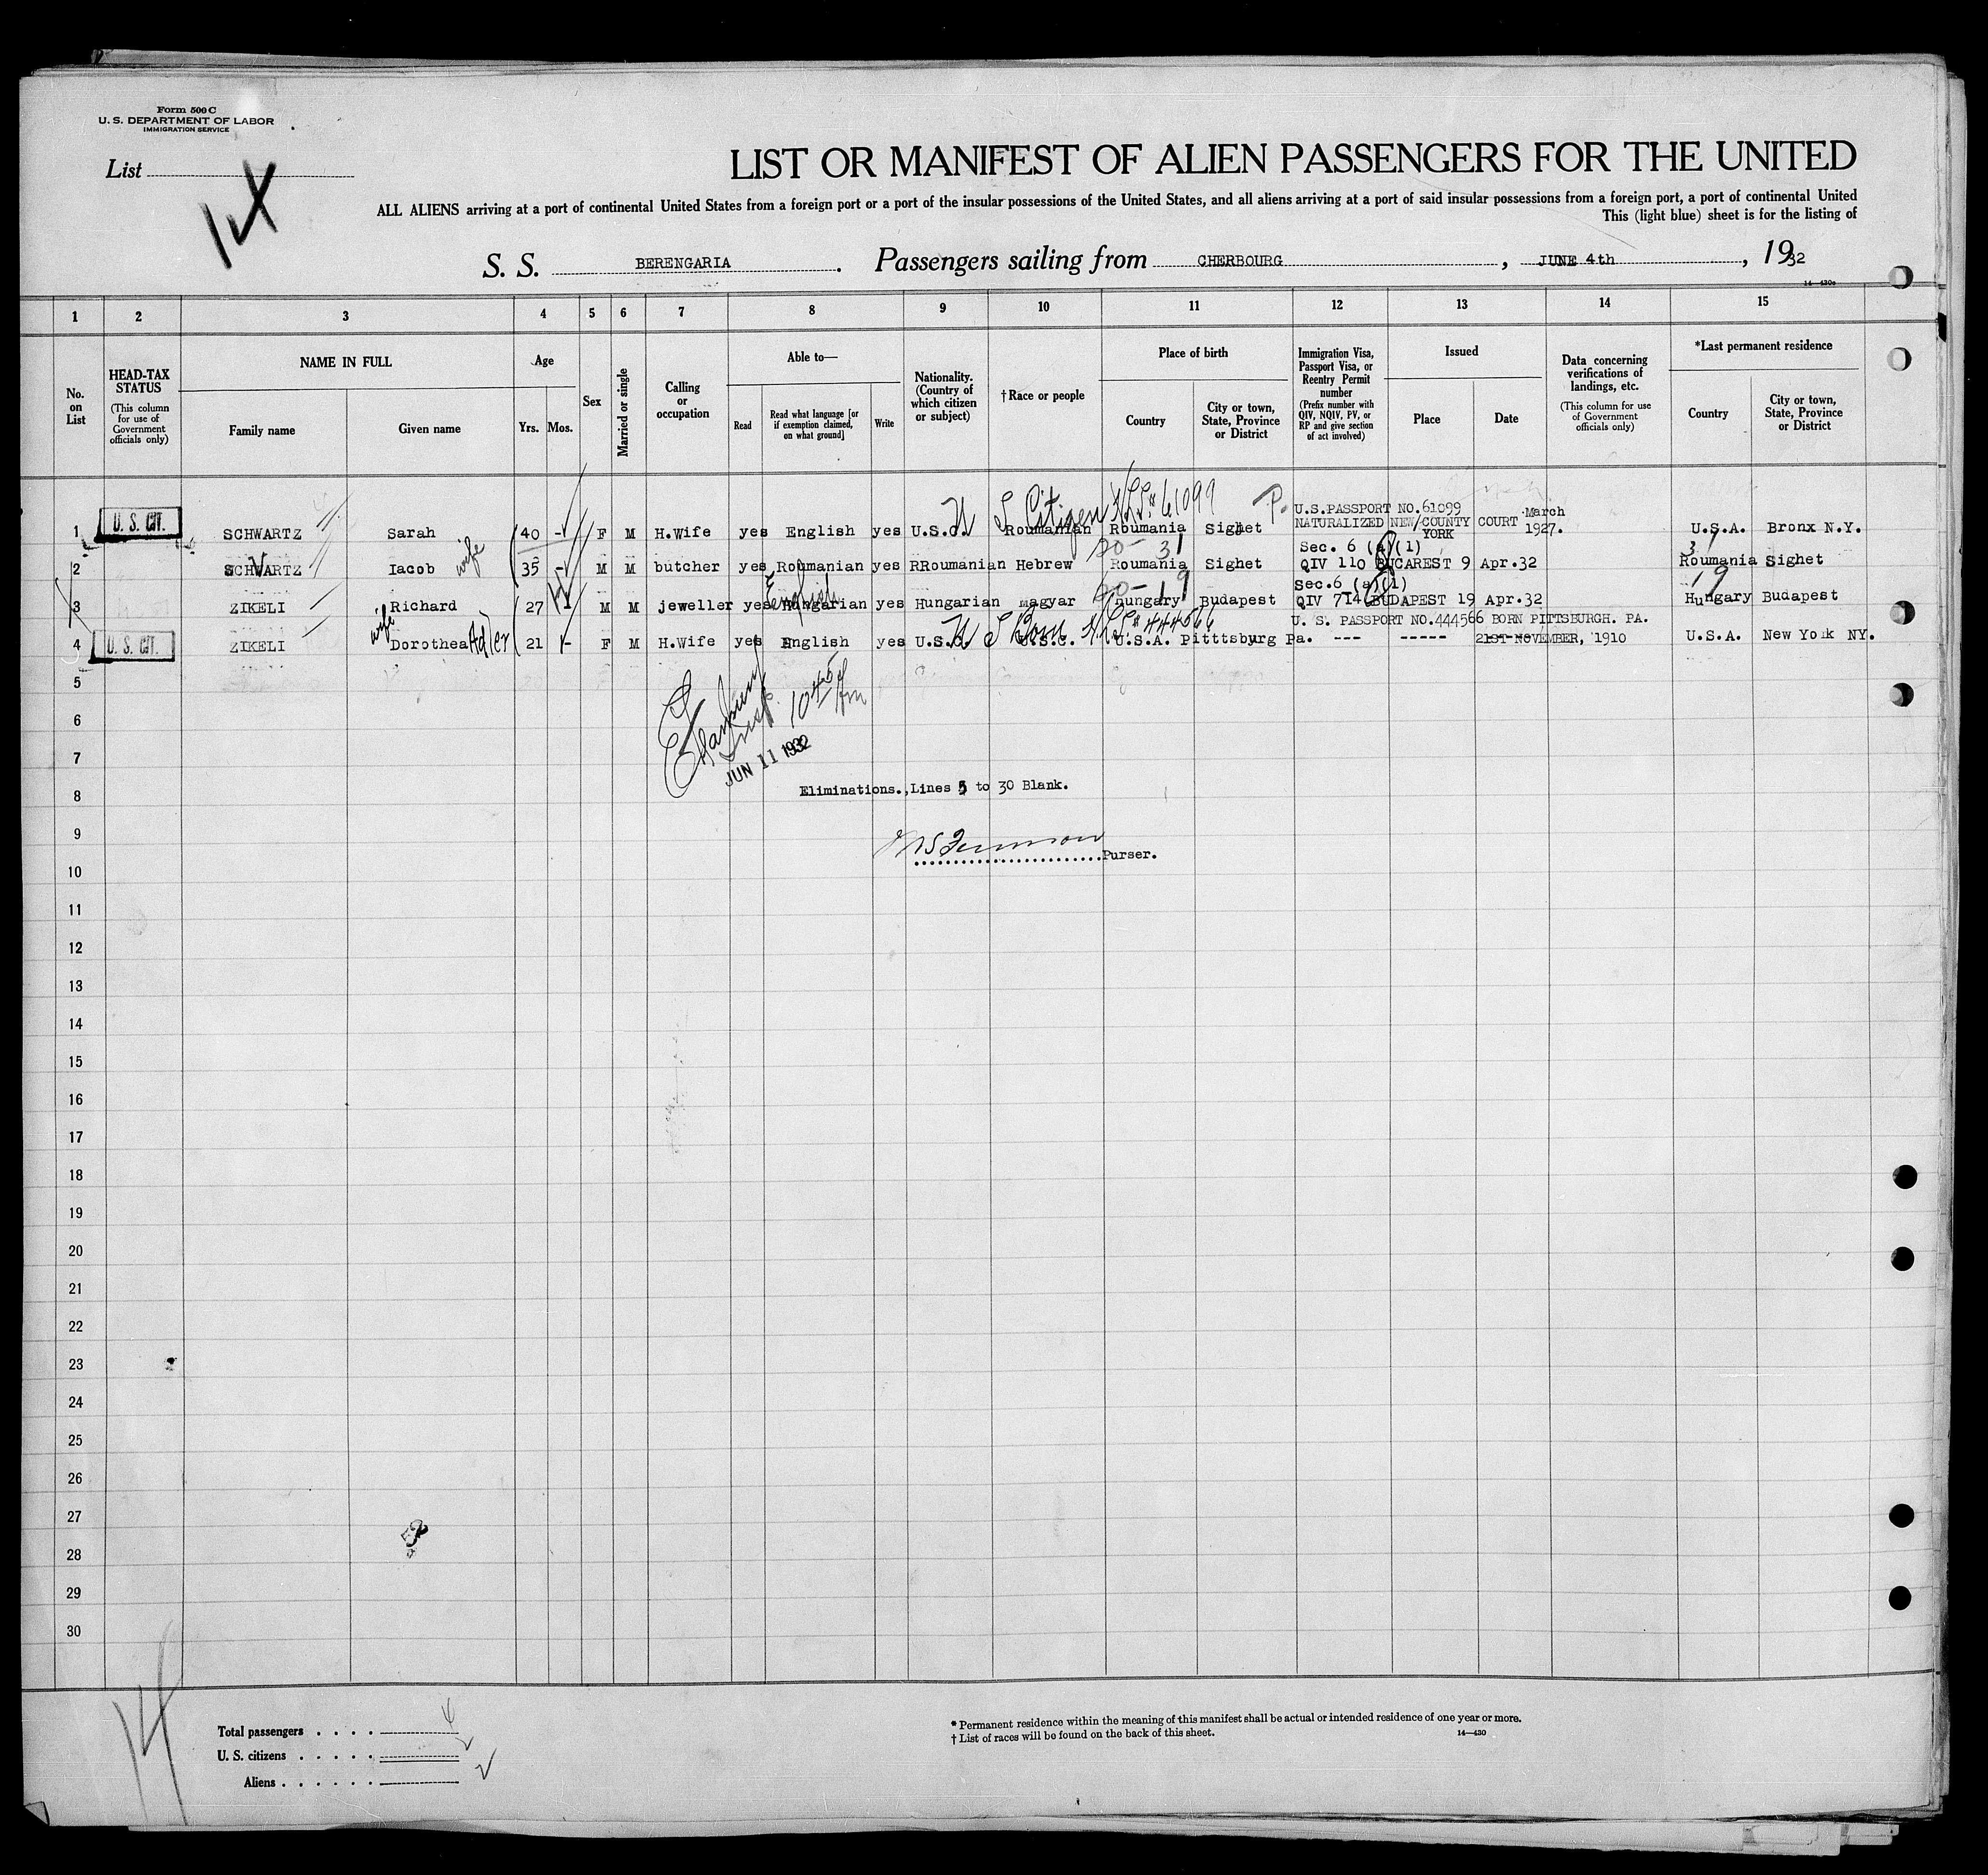 Form 500 C
U. S. DEPARTMENT OF LABOR
IMMIGRATION SERVICE
List
LIST OR MANIFEST OF ALIEN PASSENGERS FOR THE UNITED
ALL ALIENS arriving at a port of continental United States from a foreign port or a port of the insular possessions of the United States, and all aliens arriving at a port of said insular possessions from a foreign port, a port of continental United
This (light blue) sheet is for the listing of
S. S. BERENGARIA. Passengers sailing from CHERBOURG, JUNE 4th, 1932
1 2 3 4 5 6 7 8 9 10 11 12 13 14 15
No. on List
HEAD-TAX STATUS
(This column for use of Government officials only)
NAME IN FULL
Family name
Given name
Age
Yrs. Mos.
Sex
Married or single
Calling or occupation
Able to—
Read
Read what language [or if exemption claimed, on what ground]
Write
Nationality. (Country of which citizen or subject)
†Race or people
Place of birth
Country
City or town, State, Province or District
Immigration Visa, Passport Visa, or Reentry Permit number
(Prefix number with QIV, NQIV, PV, or RP and give section of act involved)
Issued
Place
Date
Data concerning verifications of landings, etc.
(This column for use of Government officials only)
*Last permanent residence
Country
City or town, State, Province or District
U S Citizen 61099 P.
U.S.PASSPORT NO.61099
NATURALIZED NEW YORK COUNTY COURT March 1927.
1 U. S. CIT. SCHWARTZ Sarah 40 - F M H.Wife yes English yes U.S.C. Roumanian Roumania Sighet U.S.A. Bronx N.Y.
wife 20-31 Sec. 6 (a)(1) 31
2 SCHWARTZ Iacob 35 - M M butcher yes Roumanian yes RRoumanian Hebrew Roumania Sighet QIV 110 BUCAREST 9 Apr.32 Roumania Sighet
English 20-19 Sec.6 (a)(1) 19
3 ZIKELI Richard 27 - M M jeweller yes Hungarian yes Hungarian magyar Hungary Budapest QIV 714 BUDAPEST 19 Apr.32 Hungary Budapest
wife U S Born 444566 U. S. PASSPORT NO.444566 BORN PITTSBURGH. PA.
4 U. S. CIT. ZIKELI Dorothea Adler 21 - F M H.Wife yes English yes U.S.C. U.S.C. U.S.A. Pitttsburg Pa. --- ----- 21ST NOVEMBER, 1910 U.S.A. New York NY.
5
6
10 45 Am
Insp.
7
JUN 11 1932
8 Eliminations., Lines 5 to 30 Blank.
9
Purser.
10
11
12
13
14
15
16
17
18
19
20
21
22
23
24
25
26
27
28
29
30
14
Total passengers . . . . 4
U. S. citizens . . . . . 2
Aliens . . . . . . 2
* Permanent residence within the meaning of this manifest shall be actual or intended residence of one year or more.
† List of races will be found on the back of this sheet.
14—430